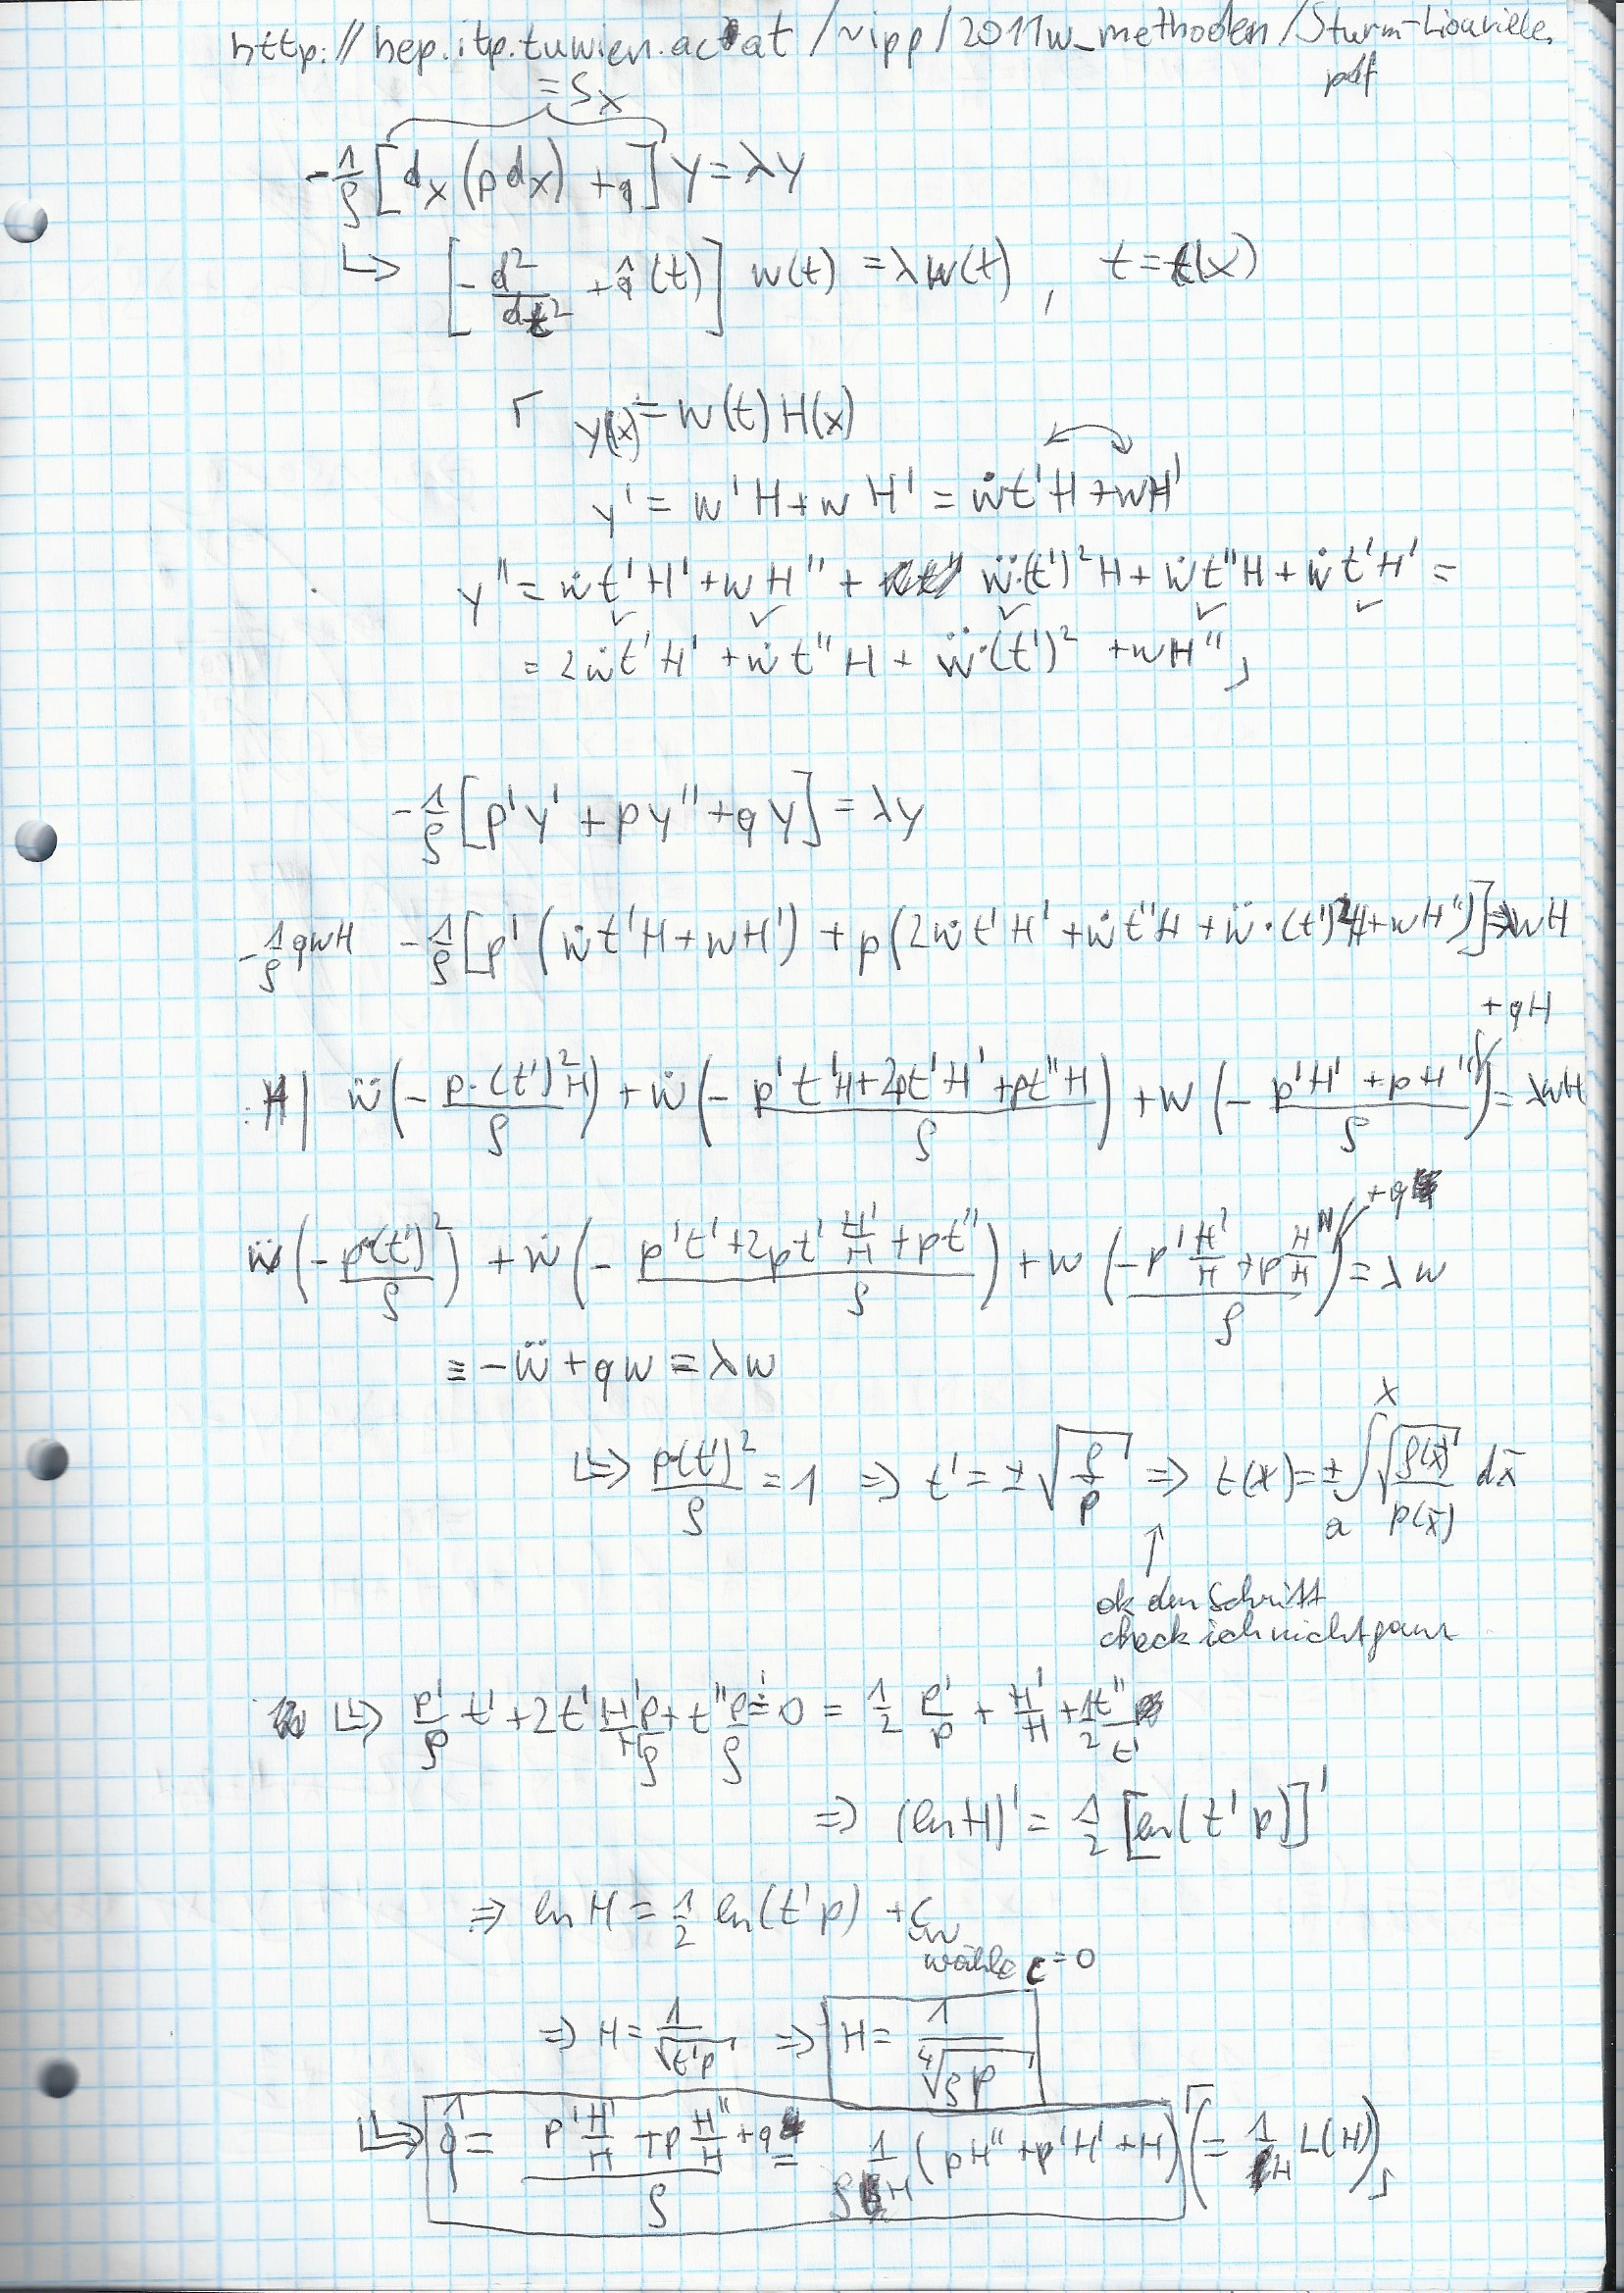 http://hep.itp.tuwien.ac.at/~ipp/2011w_methoden/Sturm-Liouville.
pdf
= S_x
-1/ρ [d_x (p d_x) + q] y = λy
↳ [-d²/dt² + q̂(t)] w(t) = λw(t), t = t(x)
⌈ y(x) = w(t) H(x)
y' = w'H + w H' = ẇt'H + wH'
y'' = ẇt'H' + wH'' + ẅ·(t')²H + ẇt''H + ẇt'H' =
= 2ẇt'H' + ẇt''H + ẅ·(t')² + wH'' ⌋
-1/ρ [p'y' + py'' + qy] = λy
-1/ρ qwH -1/ρ [p'(ẇt'H + wH') + p(2ẇt'H' + ẇt''H + ẅ·(t')²H + wH'')] = λwH
+qH
:H| ẅ(-p·(t')²H/ρ) + ẇ(-(p't'H + 2pt'H' + pt''H)/ρ) + w(-(p'H' + pH'')/ρ) = λwH
+q
ẅ(-p·(t')²/ρ) + ẇ(-(p't' + 2pt' H'/H + pt'')/ρ) + w(-(p' H'/H + p H''/H)/ρ) = λw
≡ -ẅ + qw = λw
↳⇒ p·(t')²/ρ = 1 ⇒ t' = ±√(ρ/p) ⇒ t(x) = ±∫_a^x √(ρ(x̄)/p(x̄)) dx̄
↑
ok den Schritt
check ich nicht ganz
↳⇒ p'/ρ t' + 2t' H'/H p/ρ + t'' p/ρ =! 0 = 1/2 p'/p + H'/H + 1/2 t''/t'
⇒ (ln H)' = 1/2 [ln(t'p)]'
⇒ ln H = 1/2 ln(t'p) + C
wähle C = 0
⇒ H = 1/√(t'p) ⇒ H = 1/∜(ρp)
↳⇒ q̂ = (p' H'/H + p H''/H + q)/ρ = 1/(ρH) (pH'' + p'H' + H) ⌈(= 1/H L(H))⌋